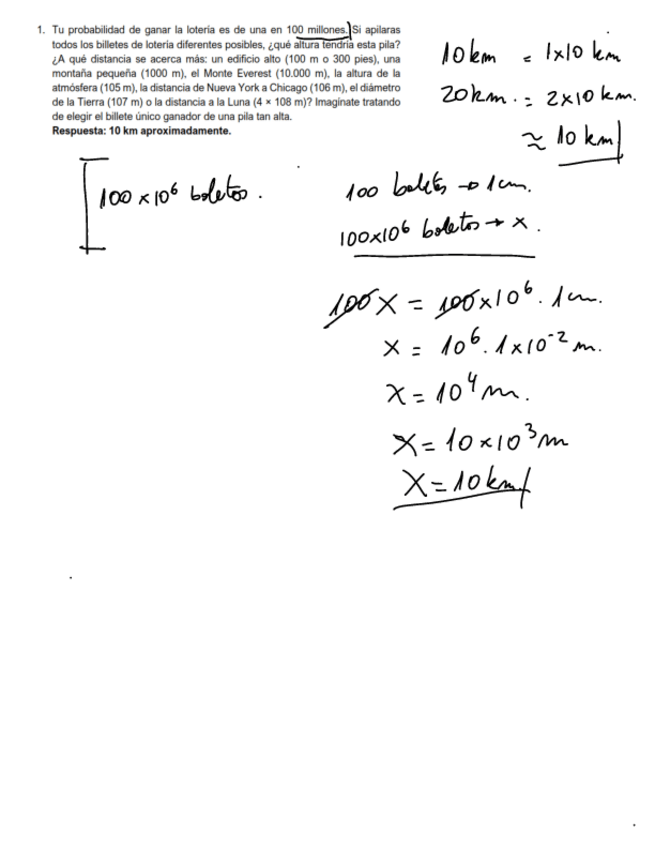 1. Tu probabilidad de ganar la lotería es de una en 100 millones. Si apilaras
todos los billetes de lotería diferentes posibles, ¿qué altura tendría esta pila?
¿A qué distancia se acerca más: un edificio alto (100 m o 300 pies), una
montaña pequeña (1000 m), el Monte Everest (10.000 m), la altura de la
atmósfera (105 m), la distancia de Nueva York a Chicago (106 m), el diámetro
de la Tierra (107 m) o la distancia a la Luna (4 × 108 m)? Imagínate tratando
de elegir el billete único ganador de una pila tan alta.
Respuesta: 10 km aproximadamente.
10 km = 1x10 km
20 km. = 2x10 km.
≈ 10 km
100 x 10⁶ boletos.
100 boletos → 1 cm.
100x10⁶ boletos → x.
100 x = 100x10⁶ . 1 cm.
x = 10⁶. 1x10⁻² m.
x = 10⁴ m.
x = 10x10³ m
x = 10 km